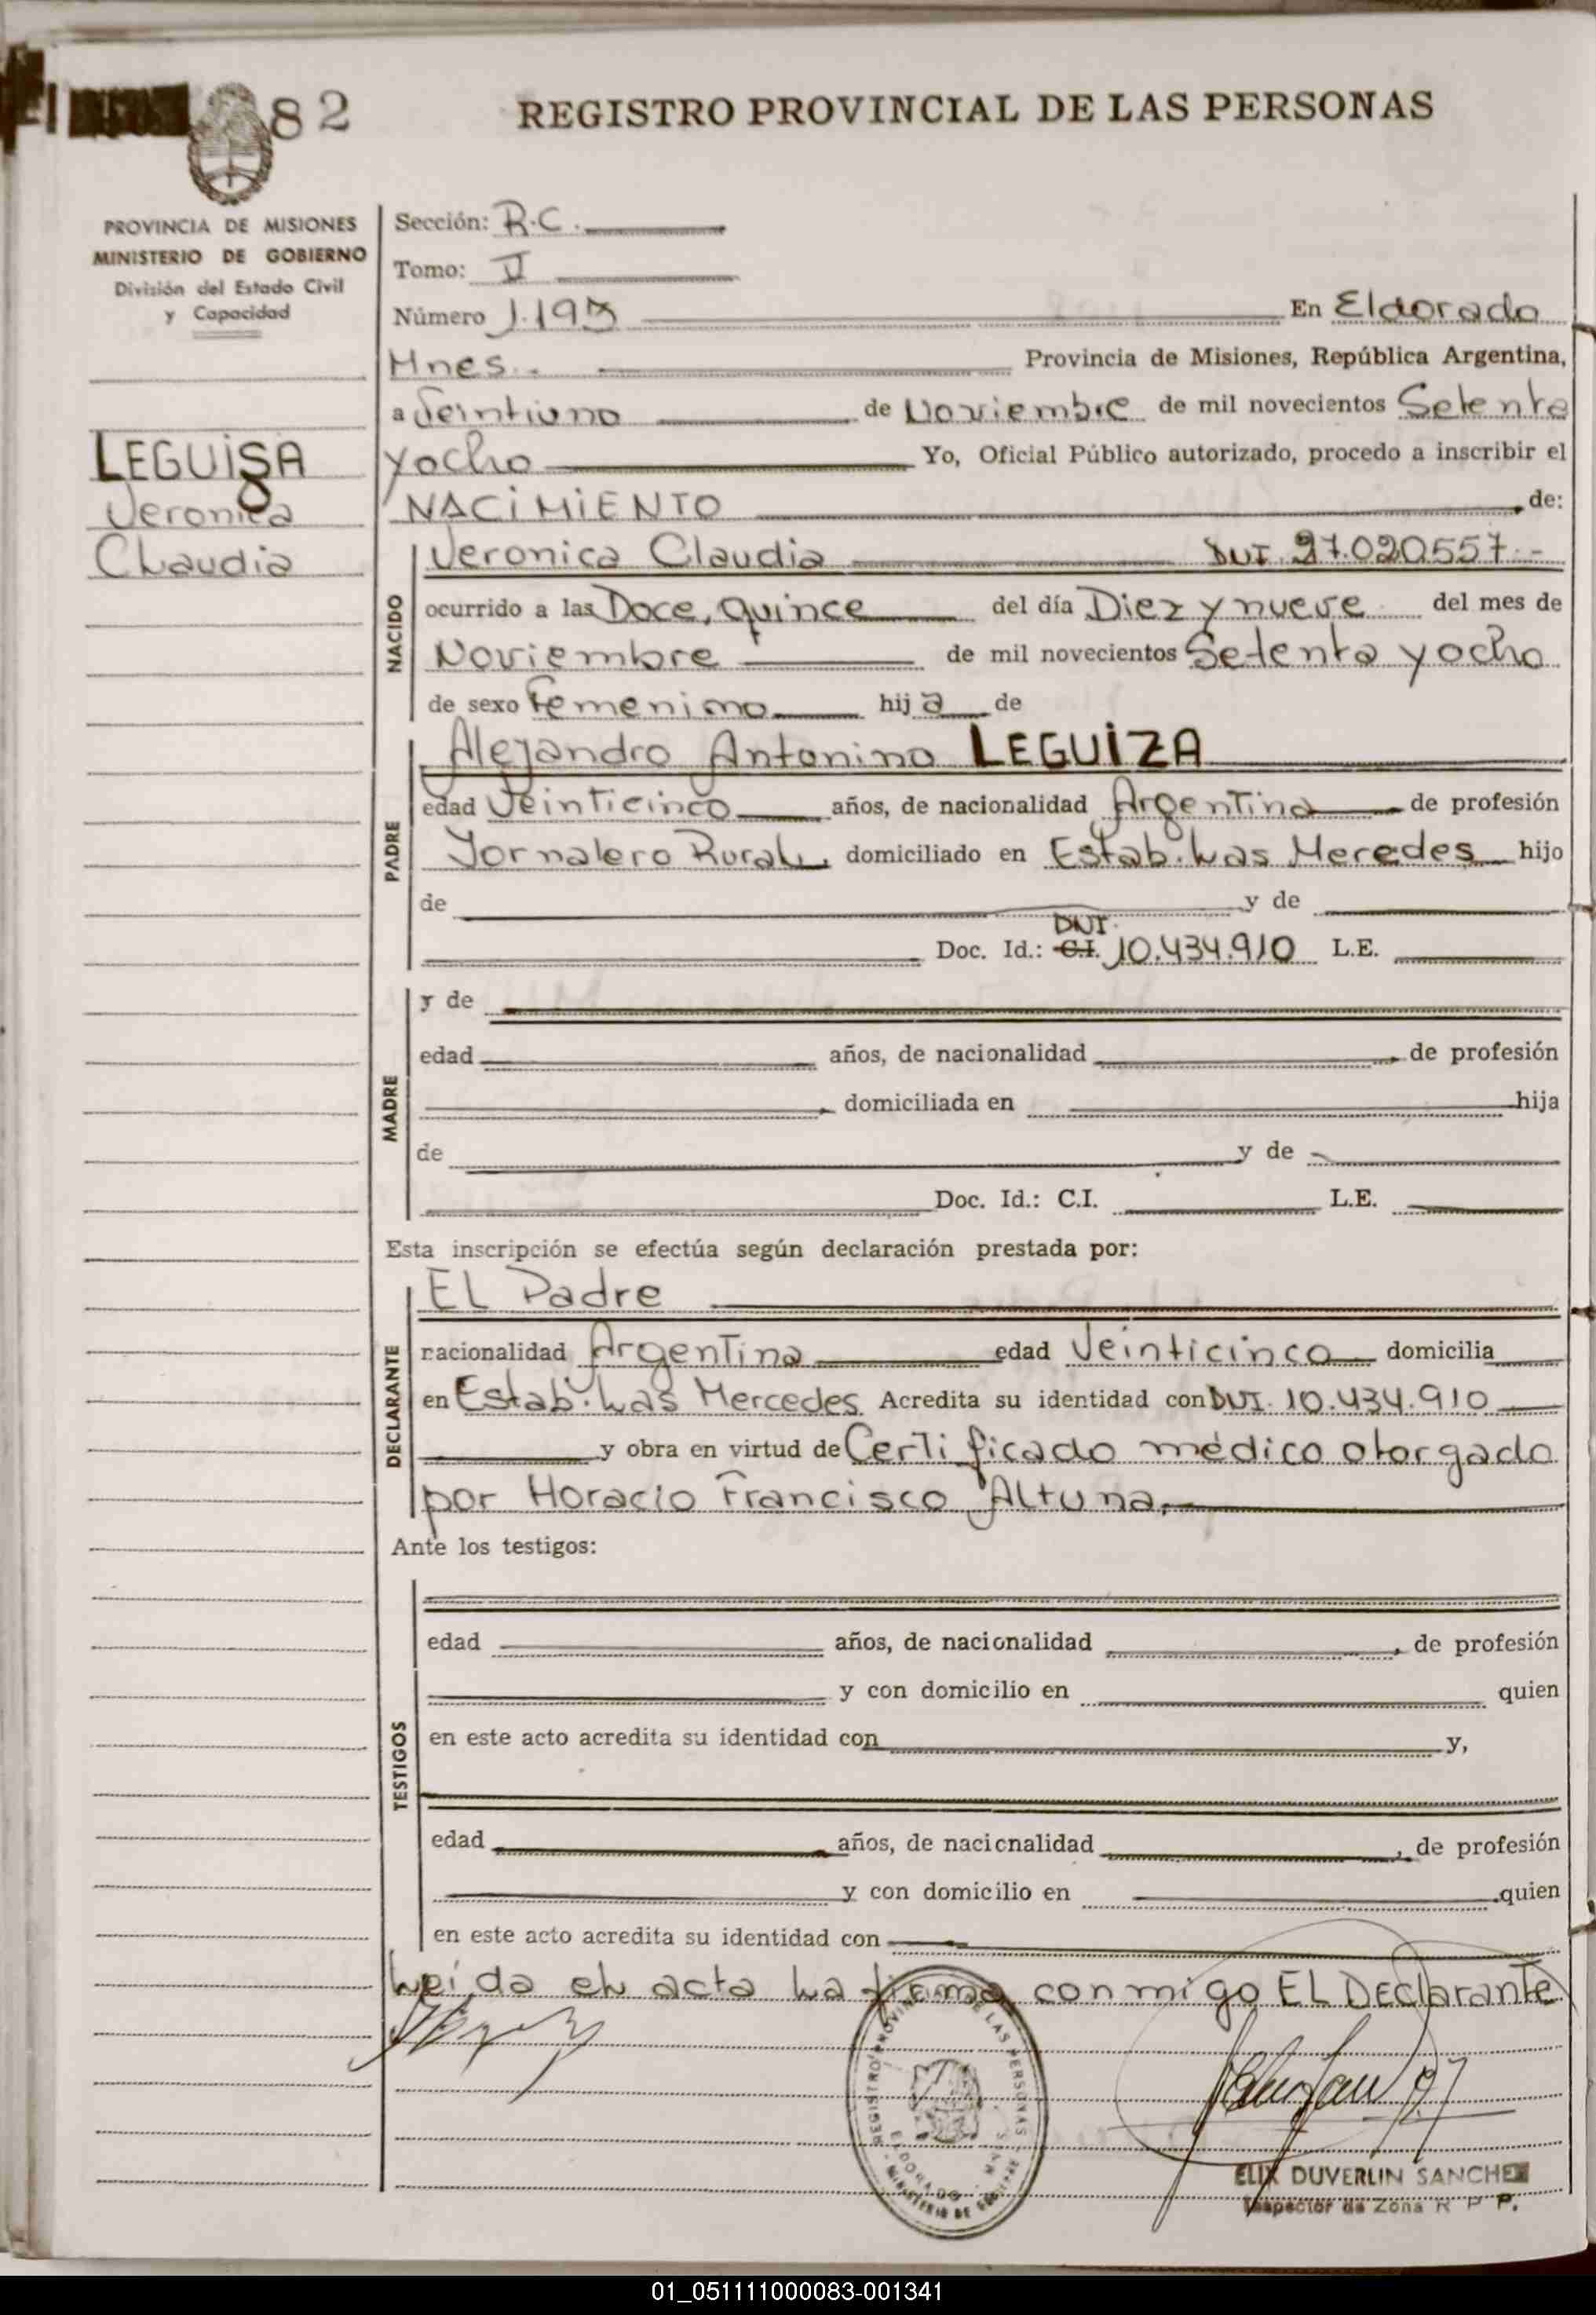 82
REGISTRO PROVINCIAL DE LAS PERSONAS
PROVINCIA DE MISIONES
MINISTERIO DE GOBIERNO
División del Estado Civil
y Capacidad
LEGUISA
Veronica
Claudia
Sección: R.C.
Tomo: II
Número 1.193 En Eldorado
Mnes. Provincia de Misiones, República Argentina,
a Veintiuno de Noviembre de mil novecientos Setenta
yocho Yo, Oficial Público autorizado, procedo a inscribir el
NACIMIENTO de:
NACIDO
Veronica Claudia DNI. 27.020.557.-
ocurrido a las Doce, quince del día Diez y nueve del mes de
Noviembre de mil novecientos Setenta yocho
de sexo Femenino hija de
PADRE
Alejandro Antonino LEGUIZA
edad Veinticinco años, de nacionalidad Argentina de profesión
Jornalero Rural, domiciliado en Estab. Las Meredes hijo
de y de
DNI.
Doc. Id.: C.I. 10.434.910 L.E.
MADRE
y de
edad años, de nacionalidad de profesión
domiciliada en hija
de y de
Doc. Id.: C.I. L.E.
Esta inscripción se efectúa según declaración prestada por:
DECLARANTE
EL Padre
nacionalidad Argentina edad Veinticinco domicilia
en Estab. Las Mercedes Acredita su identidad con DNI. 10.434.910
y obra en virtud de Certificado médico otorgado
por Horacio Francisco Altuna.
Ante los testigos:
TESTIGOS
edad años, de nacionalidad, de profesión
y con domicilio en quien
en este acto acredita su identidad con y,
edad años, de nacionalidad, de profesión
y con domicilio en quien
en este acto acredita su identidad con
Leída el acta La firma conmigo EL DEClarante
REGISTRO PROVINCIAL DE LAS PERSONAS
ELDORADO - MNES.
MINISTERIO DE GOBIERNO
ELIX DUVERLIN SANCHEZ
Inspector de Zona R P P.
01_051111000083-001341